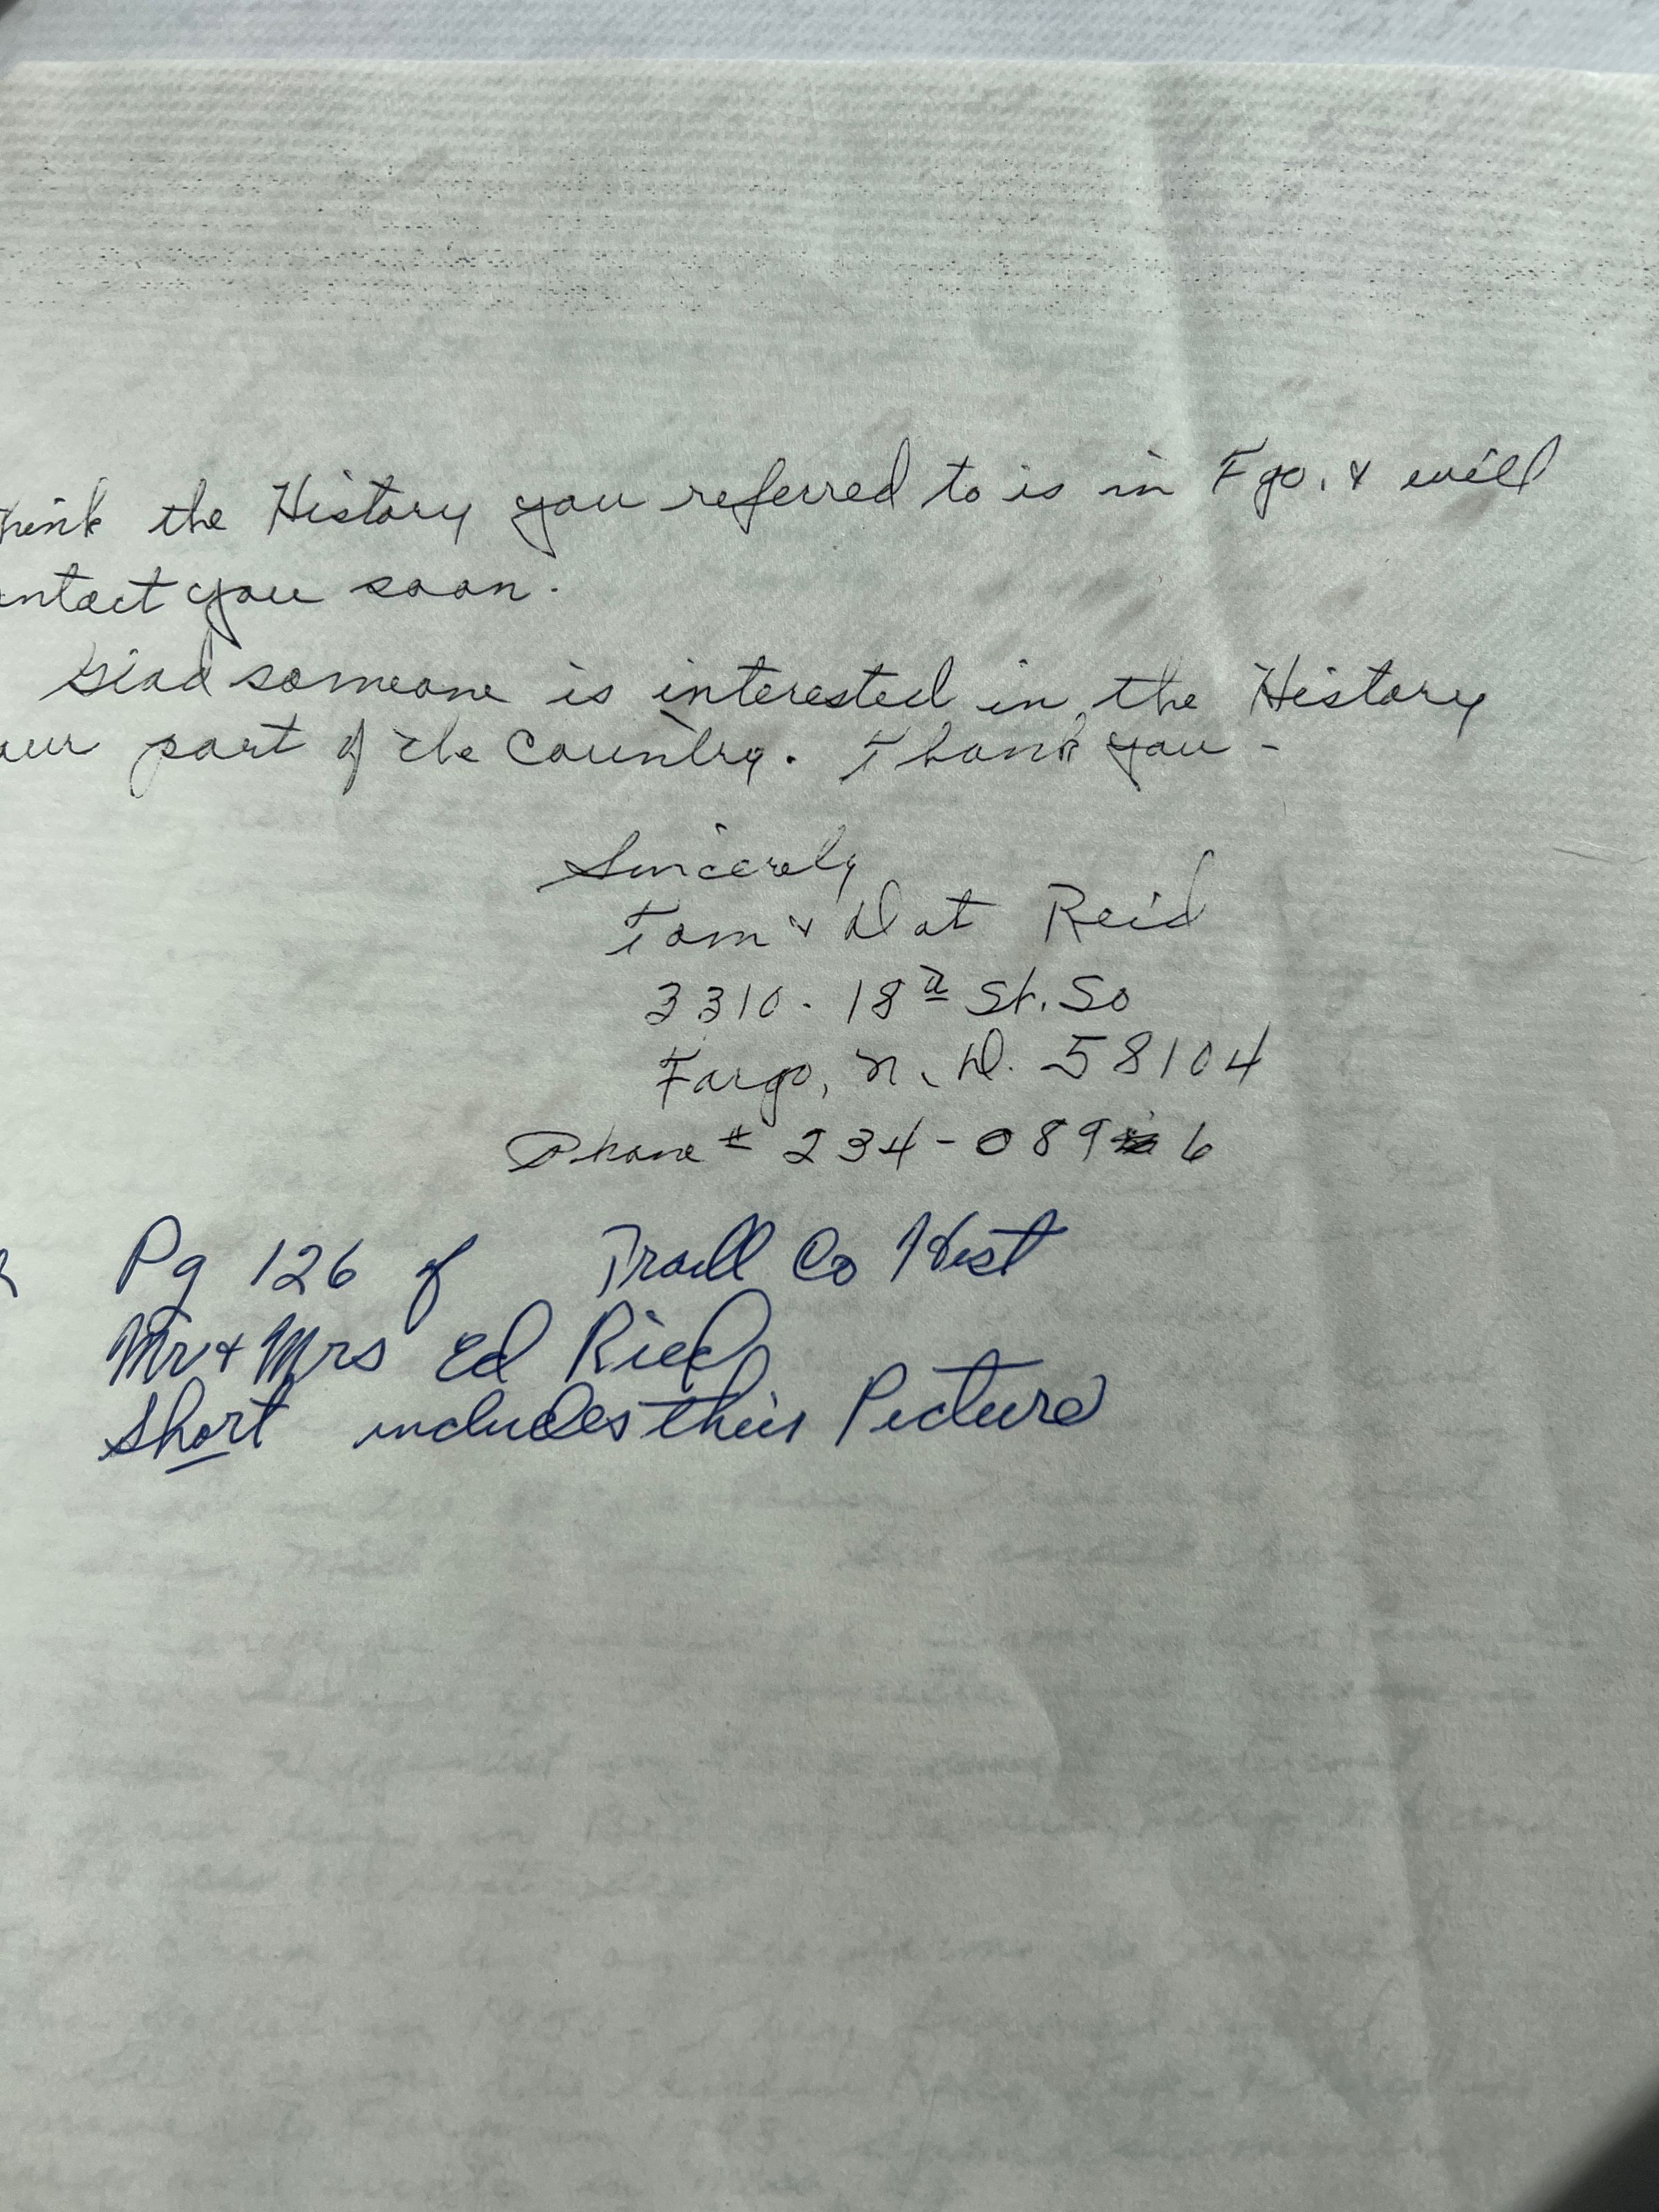 hink the History you referred to is in Fgo. & will
ontact you soon.
Glad someone is interested in the History
our part of the Country. Thank you -
Sincerely
Tom & Dot Reid
3310 - 18th St. So
Fargo, N. D. 58104
Phone # 234-0896
Pg 126 of Traill Co Hist
Mr + Mrs Ed Ried
Short includes their Picture